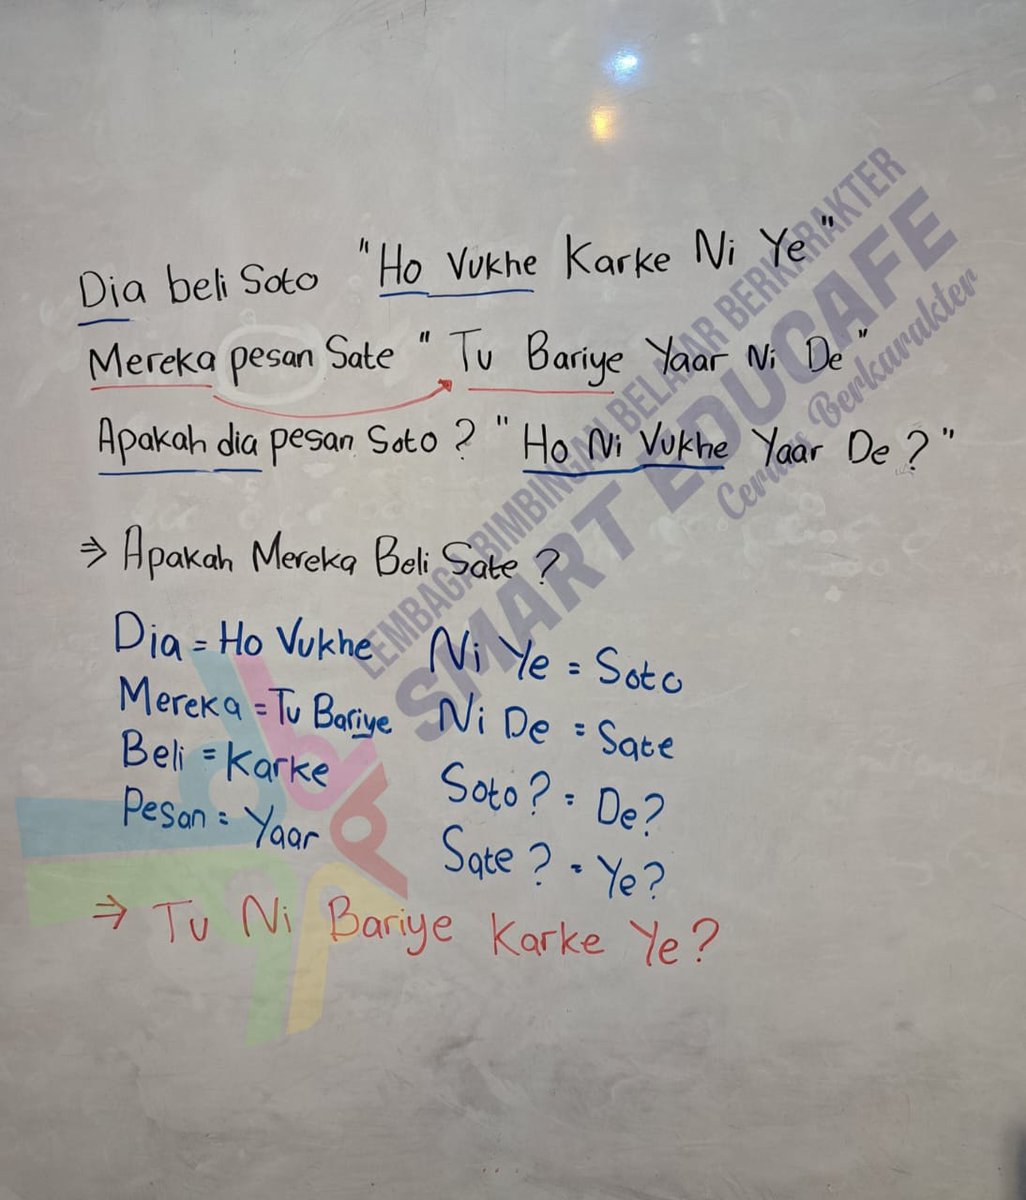 Dia beli Soto "Ho Vukhe Karke Ni Ye"
Mereka pesan Sate "Tu Bariye Yaar Ni De"
Apakah dia pesan Soto? "Ho Ni Vukhe Yaar De?"
⇒ Apakah Mereka Beli Sate?
Dia = Ho Vukhe
Mereka = Tu Bariye
Beli = Karke
Pesan = Yaar
Ni Ye = Soto
Ni De = Sate
Soto? = De?
Sate? = Ye?
⇒ Tu Ni Bariye Karke Ye?
LEMBAGA BIMBINGAN BELAJAR BERKARAKTER
SMART EDUCAFE
Cerdas Berkarakter